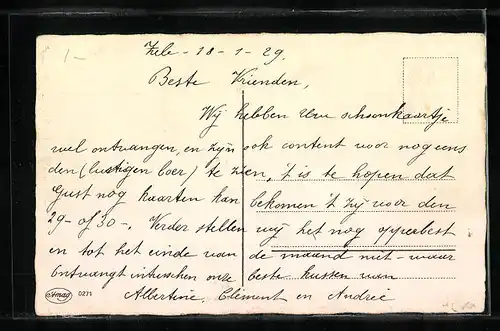 1-
Zele - 18 - 1 - 29.
Beste Vrienden,
Wij hebben Uw schoonkaartje
wel ontvangen, en zijn ook content voor nog eens
den (lustigen boer) te zien, 't is te hopen dat
Gust nog kaarten kan bekomen 't zij voor den
29- of 30-. Verder stellen wij het nog opperbest
en tot het einde van de maand niet-waar
Ontvangt intusschen onze beste kussen van
Albertine, Clement en André
Amag 0271